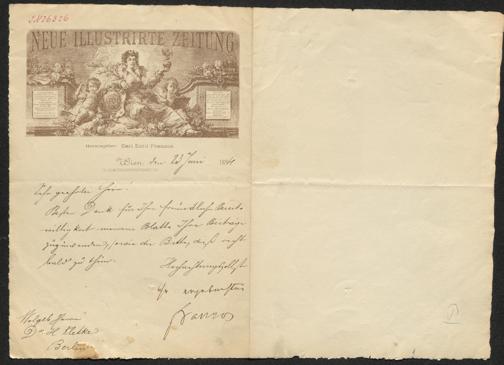 NEUE ILLUSTRIRTE ZEITUNG
Herausgeber: Carl Emil Franzos
Wien, den 23 Juni 1884
Sehr geehrter Herr!
Besten Dank für Ihre freundliche Bereit-
willigkeit meinem Blatte Ihre Beiträge
zuzuwenden, sowie die Bitte, dies recht
bald zu thun.
Hochachtungsvollst
Ihr ergebenster
Franzos
Wolgeb Herrn
Dr H Kletke
Berlin